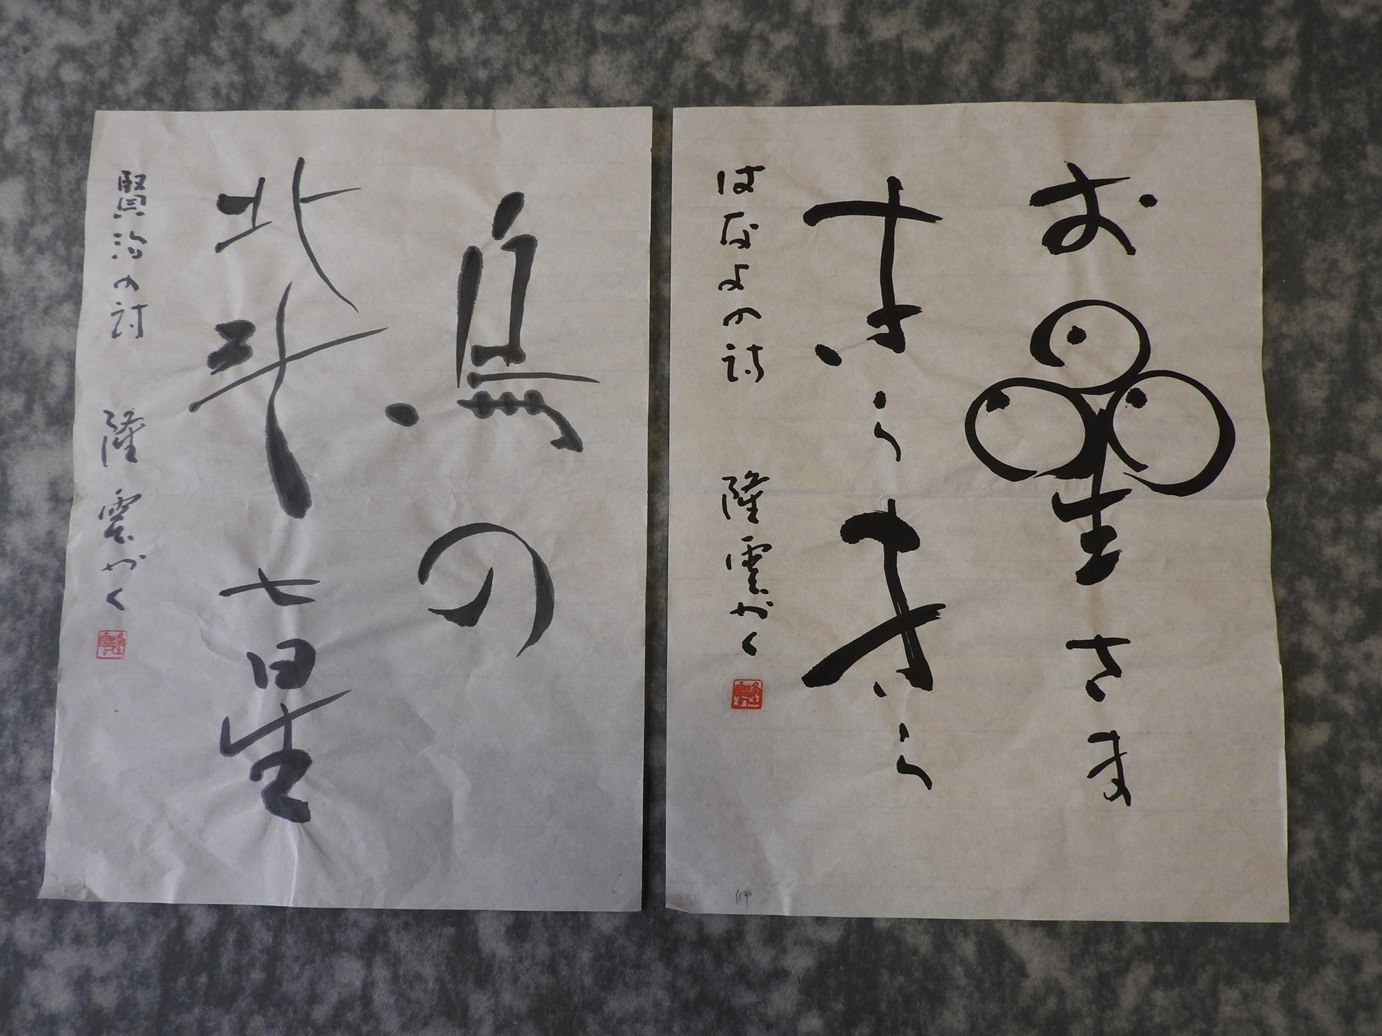 お星さま
きらきら
はなよの詩 隆雲かく
師
烏の
北斗七星
賢治の詩 隆雲かく